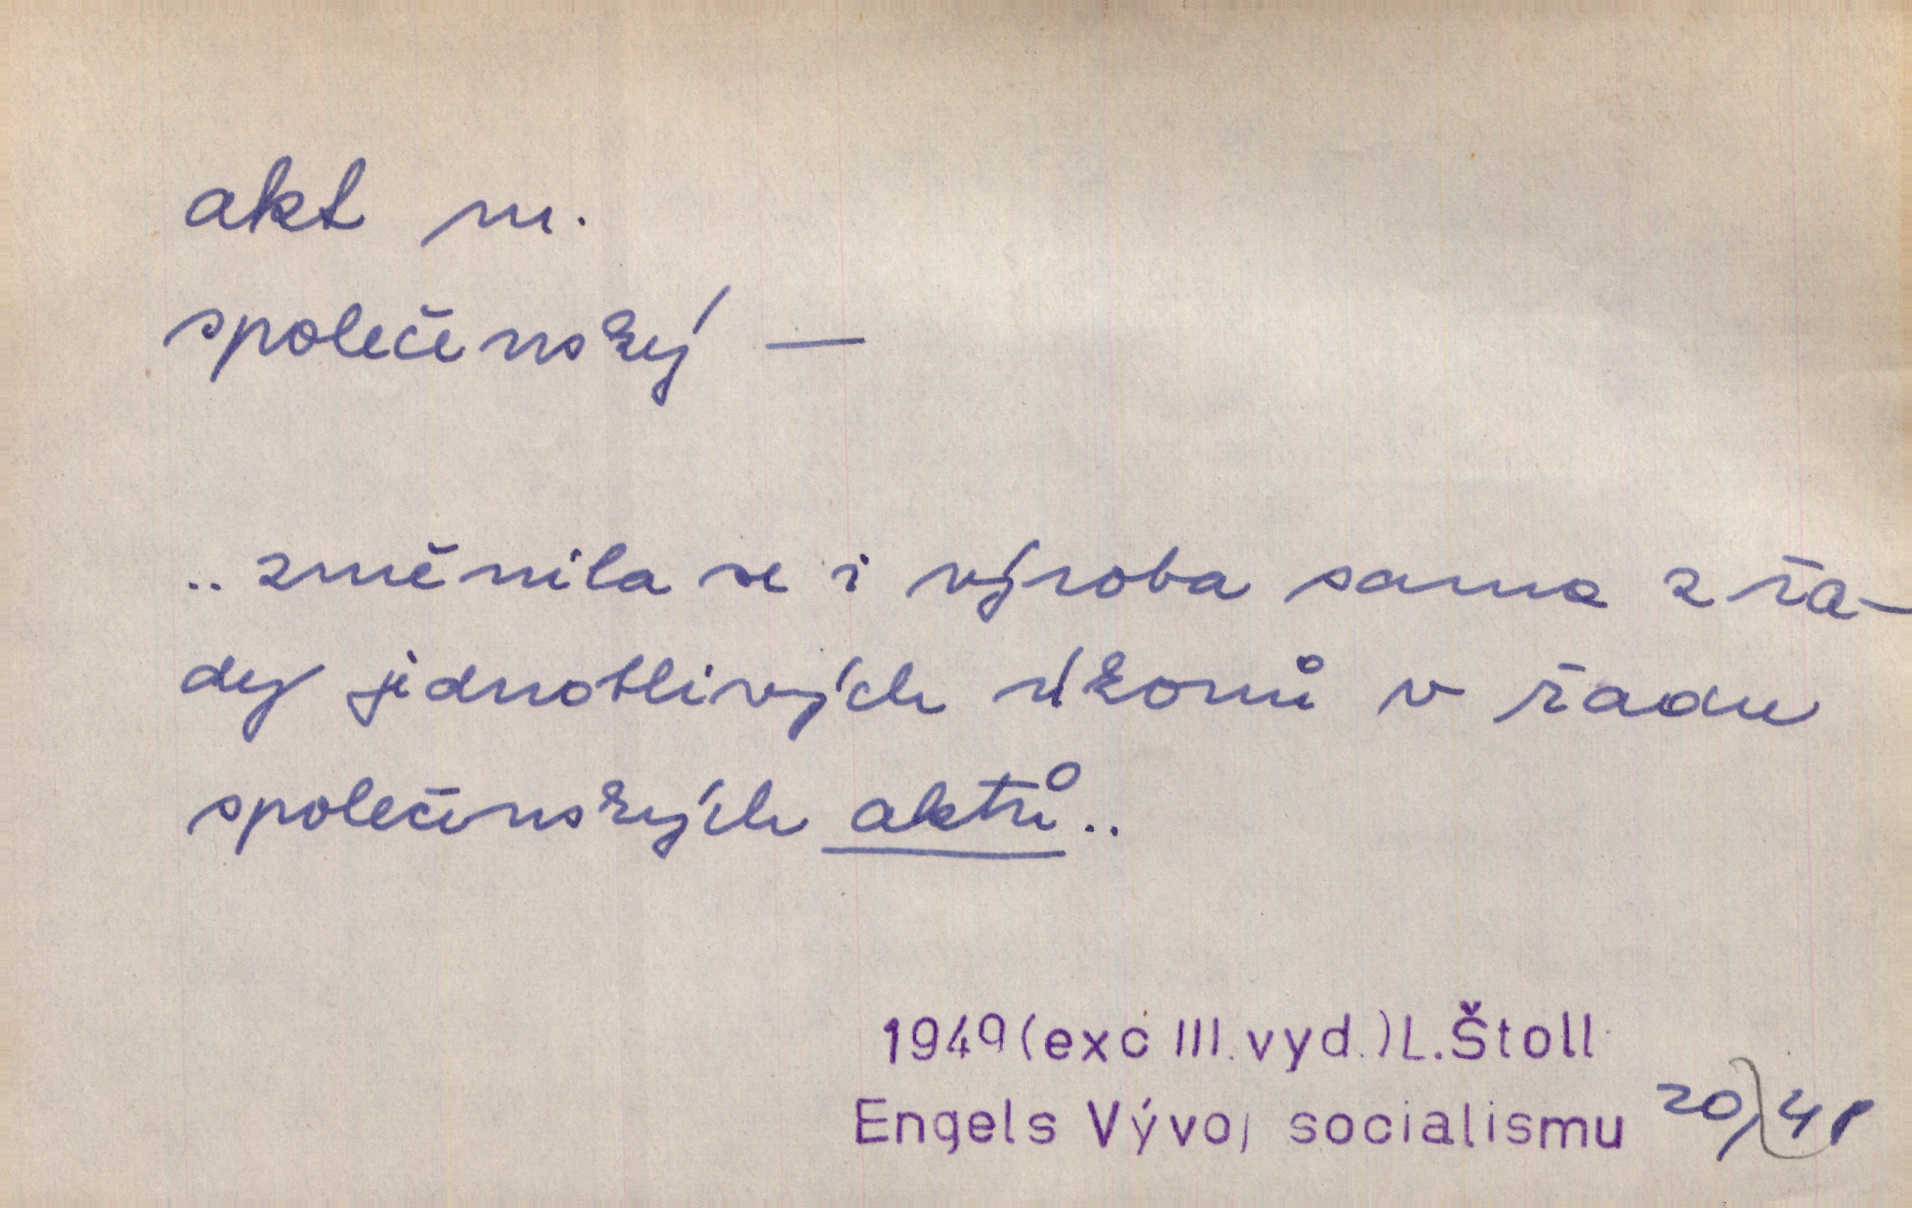 akt m.
společenský —
.. změnila se i výroba sama z řa-
dy jednotlivých úkonů v řadu
společenských aktů..
1949 (exc III. vyd.) L. Štoll
Engels Vývoj socialismu 20/41